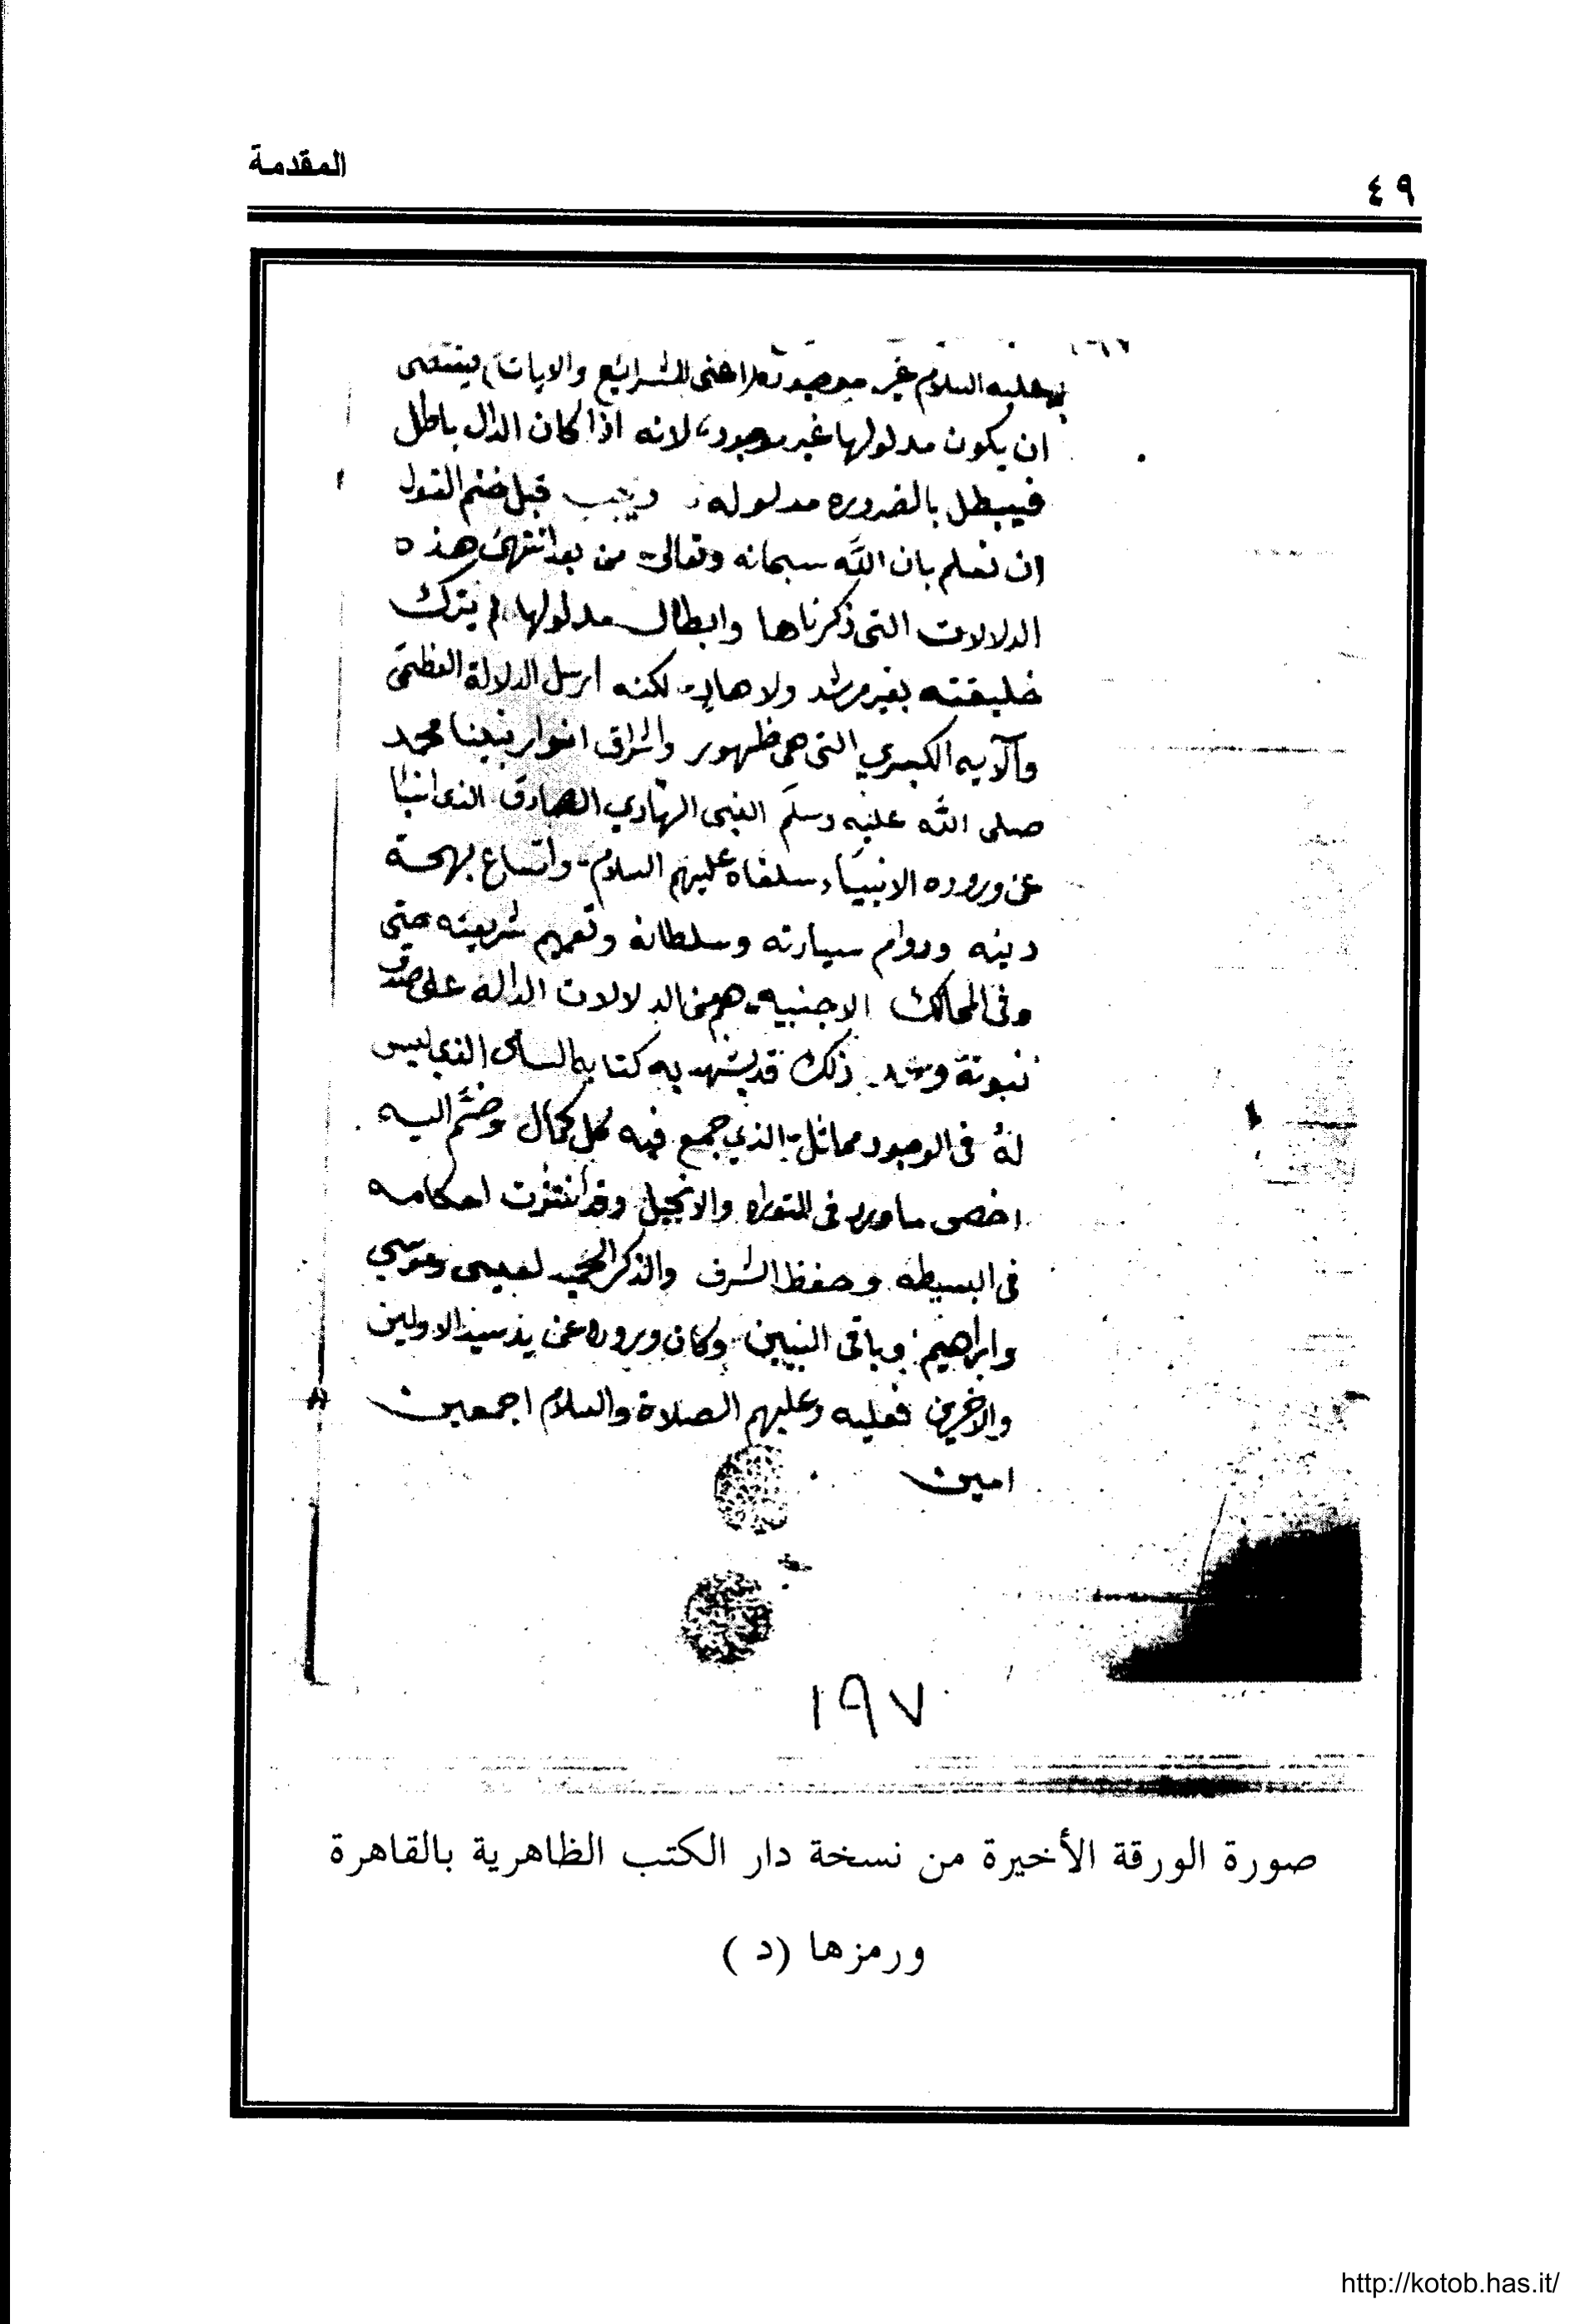 المقدمة
٤٩
عليه السلام غير موجوده (اعنى الشرائع والايات) يقتضى
ان يكون مدلولها غير موجود، لانه اذا كان الدال باطل
فيبطل بالضروره مدلوله ويجب قبل ختم القول
ان نعلم بان الله سبحانه وتعالى من بعد انتهى هذه
الدلالات التى ذكرناها وابطال مدلولها لم يترك
خليقته بغير مرشد ولا هاد لكنه ارسل الدلالة العظمى
والآيه الكبرى التى هى ظهور واشراق انوار نبينا محمد
صلى الله عليه وسلم النبى الهادي الصادق الذى انبا
عن وروده الانبياء سلفاه عليهم السلام واتساع بهجة
دينه ودوام سيادته وسلطانه وتعميم شريعته حتى
وفى الممالك الاجنبيه هم من الدلالات الداله على صدق
نبوته وذلك قد يشهد به كتابه السامى الذي ليس
لهُ فى الوجود مماثل الذي جمع فيه كل كمال وضمّ اليه
اخص ما ورد فى التوراه والانجيل وقد انتشرت احكامه
فى البسيطه وحفظ الشرف والذكر المجيد لعيسى وموسى
وابراهيم وباقى النبيين وكان وروده عن يد سيد الاولين
والاخرين فعليه وعليهم الصلاة والسلام اجمعين
امين
١٩٧
صورة الورقة الأخيرة من نسخة دار الكتب الظاهرية بالقاهرة
ورمزها (د)
http://kotob.has.it/